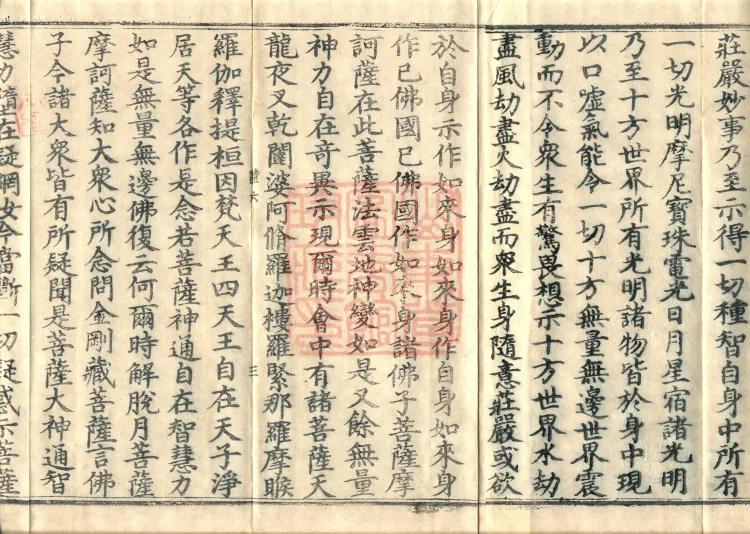 莊嚴妙事乃至示得一切種智自身中所有
一切光明摩尼寶珠電光日月星宿諸光明
乃至十方世界所有光明諸物皆於身中現
以口噓氣能令一切十方無量無邊世界震
動而不令衆生有驚畏想示十方世界水劫
盡風劫盡火劫盡而衆生身隨意莊嚴或欲
於自身示作如來身如來身作自身如來身
作已佛國已佛國作如來身諸佛子菩薩摩
訶薩在此菩薩法雲地神變如是又餘無量
神力自在奇異示現爾時會中有諸菩薩天
龍夜叉乾闥婆阿脩羅迦樓羅緊那羅摩睺
六 三
羅伽釋提桓因梵天王四天王自在天子淨
居天等各作是念若菩薩神通自在智慧力
如是無量無邊佛復云何爾時解脫月菩薩
摩訶薩知大衆心所念問金剛藏菩薩言佛
子今諸大衆皆有所疑聞是菩薩大神通智
慧力墮在疑網汝今當斷一切疑惑示菩薩